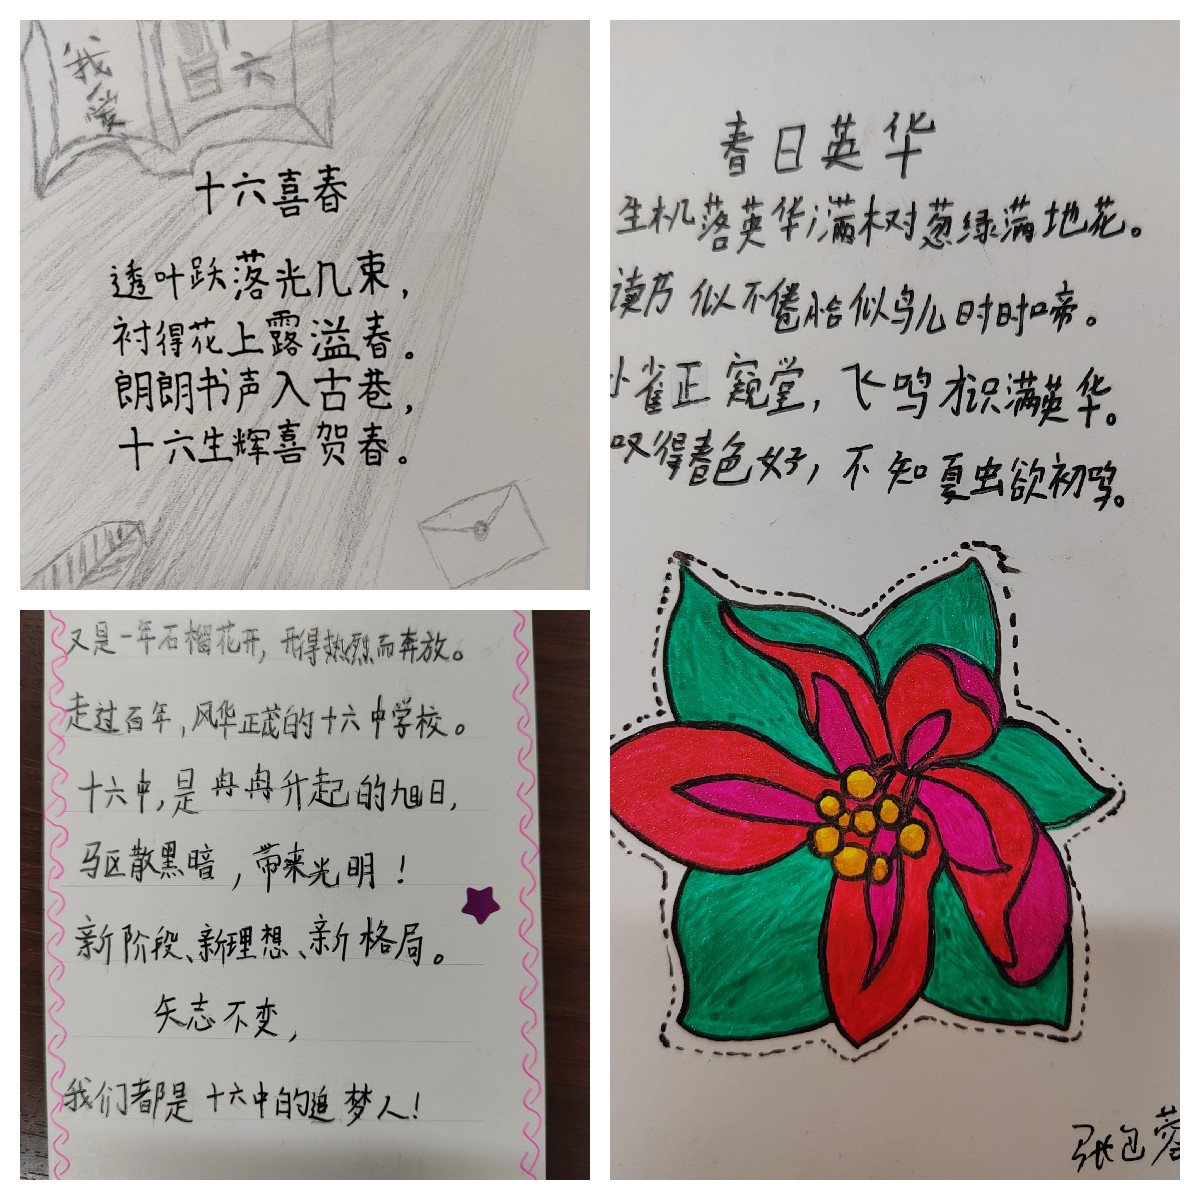 我爱
六
十六喜春
透叶跃落光几束，
衬得花上露溢春。
朗朗书声入古巷，
十六生辉喜贺春。
又是一年石榴花开，开得热烈而奔放。
走过百年，风华正茂的十六中学校。
十六中，是冉冉升起的旭日，
驱散黑暗，带来光明！
新阶段、新理想、新格局。
矢志不变，
我们都是十六中的追梦人！
春日英华
生机落英华满树葱绿满地花。
读乃似不倦恰似鸟儿时时啼。
小雀正窥堂，飞鸣才识满英华。
叹得春色好，不知夏虫欲初鸣。
张包蓉